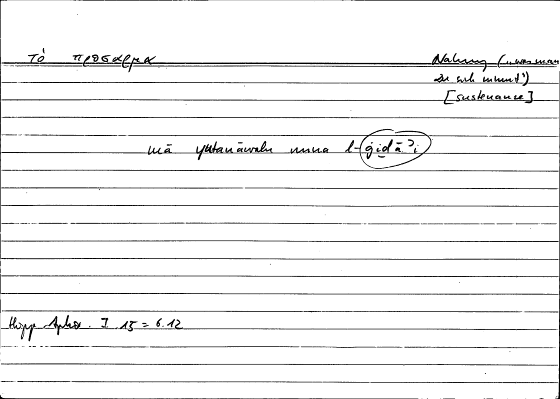 τὸ πρόσαρμα Nahrung („was man
zu sich nimmt“)
[sustenance]
mā yutanāwalu mina l-ġiḏāʾi
Hipp. Aphor. I 15 = 6.12